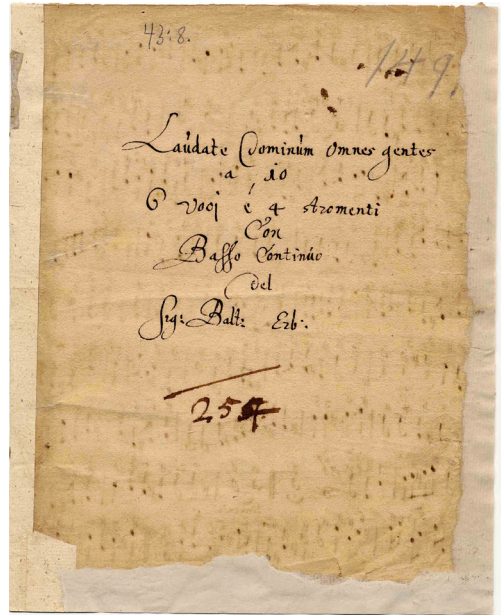 43:8.
149.
Laúdate Dominúm omnes gentes
a 10
6 Voci è 4 Stromenti
Con
Basso Continúo
del
Sigr: Balt: Erb:
254